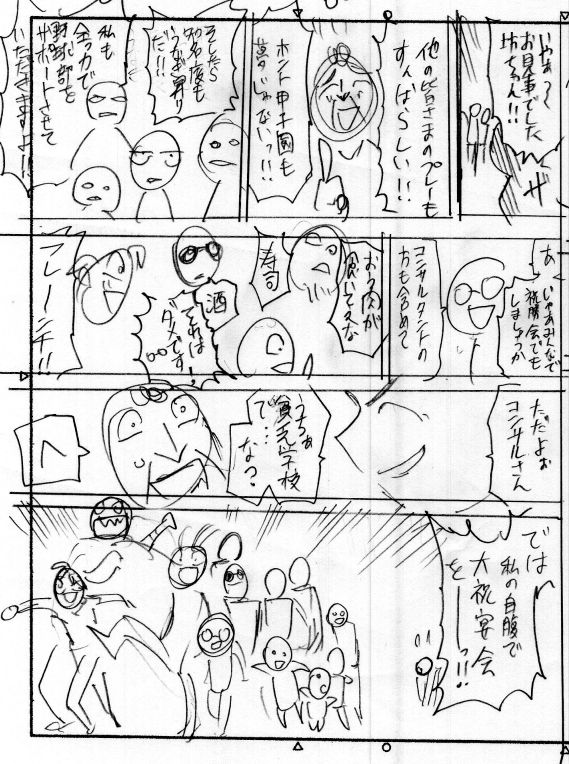 いやぁ～
お見事でした
坊ちゃん!!
他の皆さまのプレーも
すんばらしい!!
ホント甲子園も
夢じゃないっ!!
そしたら
知名度も
うなぎ昇り
だ!!
私も
全力で
野球部を
サポートさせて
いただきますよ!!
あ
じゃあみんなで
祝勝会でも
しましょうか
コンサルタントの
おもくもめて
おう肉が
食いてえな
寿司
酒
それは
ダメです
フレーンチ!!
ただよぉ
コンサルさん
うちぁ
貧乏学校
で…
な?
へ
では
私の自腹で
大祝宴会
を
っ!!